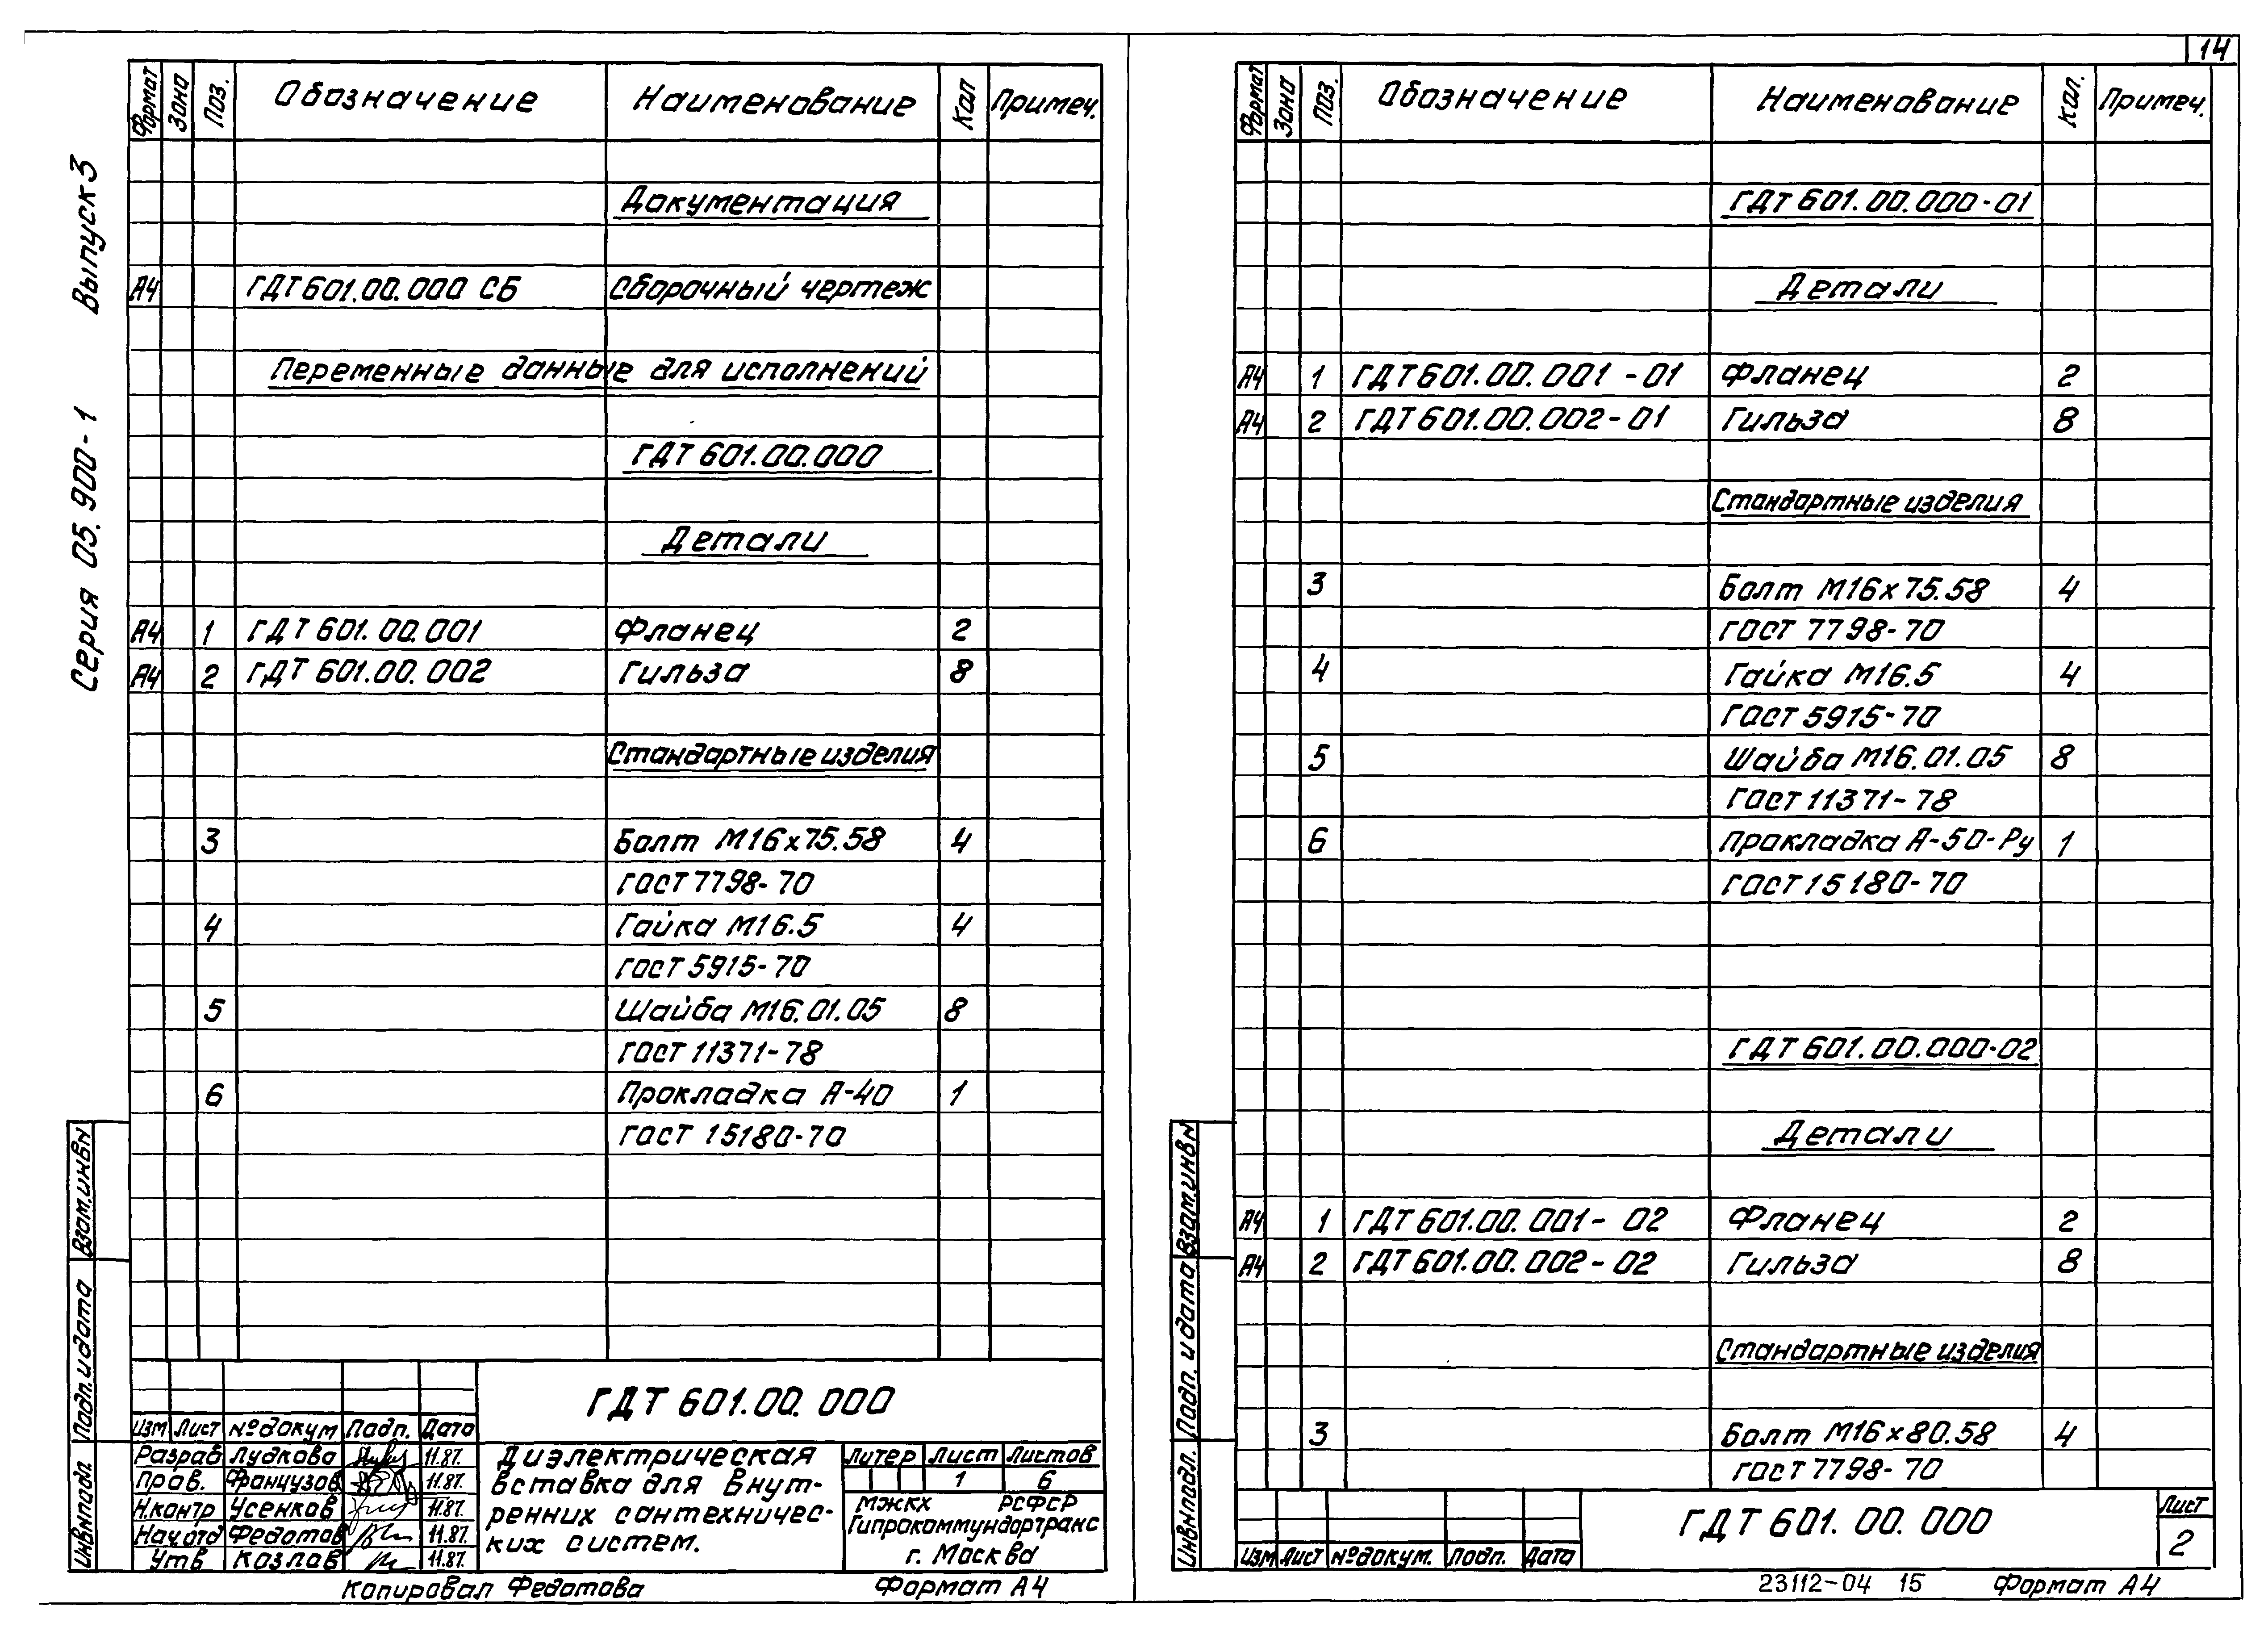 14
Серия 05.900-1 Выпуск 3
Формат Зона Поз. Обозначение Наименование Кол Примеч.
Документация
А4 ГДТ 601.00.000 СБ Сборочный чертеж
Переменные данные для исполнений
ГДТ 601.00.000
Детали
А4 1 ГДТ 601.00.001 Фланец 2
А4 2 ГДТ 601.00.002 Гильза 8
Стандартные изделия
3 Болт М16х75.58 4
ГОСТ 7798-70
4 Гайка М16.5 4
ГОСТ 5915-70
5 Шайба М16.01.05 8
ГОСТ 11371-78
6 Прокладка А-40 1
ГОСТ 15180-70
Взам.инв.н
Подп. и дата
Инв.н подл.
ГДТ 601.00.000
Изм Лист № докум Подп. Дата
Разраб Лудкова 11.87.
Пров. Французов 11.87.
Н.контр Усенков 11.87.
Нач.отд Федотов 11.87.
Утв Козлов 11.87.
Диэлектрическая
вставка для внут-
ренних сантехничес-
ких систем.
Литер Лист Листов
1 6
МЖКХ РСФСР
Гипрокоммундортранс
г. Москва
Копировал Федотова Формат А4
Формат Зона Поз. Обозначение Наименование Кол. Примеч.
ГДТ 601.00.000-01
Детали
А4 1 ГДТ 601.00.001-01 Фланец 2
А4 2 ГДТ 601.00.002-01 Гильза 8
Стандартные изделия
3 Болт М16х75.58 4
ГОСТ 7798-70
4 Гайка М16.5 4
ГОСТ 5915-70
5 Шайба М16.01.05 8
ГОСТ 11371-78
6 Прокладка А-50-Ру 1
ГОСТ 15180-70
ГДТ 601.00.000-02
Детали
А4 1 ГДТ 601.00.001-02 Фланец 2
А4 2 ГДТ 601.00.002-02 Гильза 8
Стандартные изделия
3 Болт М16х80.58 4
ГОСТ 7798-70
Взам.инв.н
Подп. и дата
Инв.н подл.
Изм Лист № докум. Подп. Дата
ГДТ 601.00.000
Лист
2
23112-04 15 Формат А4